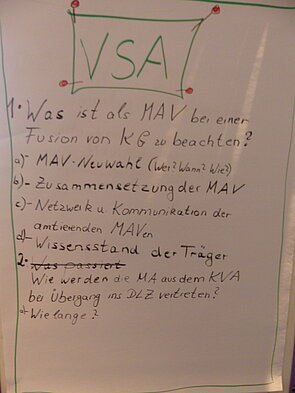 VSA
1. Was ist als MAV bei einer
Fusion von KG zu beachten?
a)- MAV-Neuwahl (Wer? Wann? Wie?)
b)- Zusammensetzung der MAV
c)- Netzwerk u. Kommunikation der
amtierenden MAVen
d)- Wissensstand der Träger
2. Was passiert
Wie werden die MA aus dem KVA
bei Übergang ins DLZ vertreten?
a)- Wie lange?